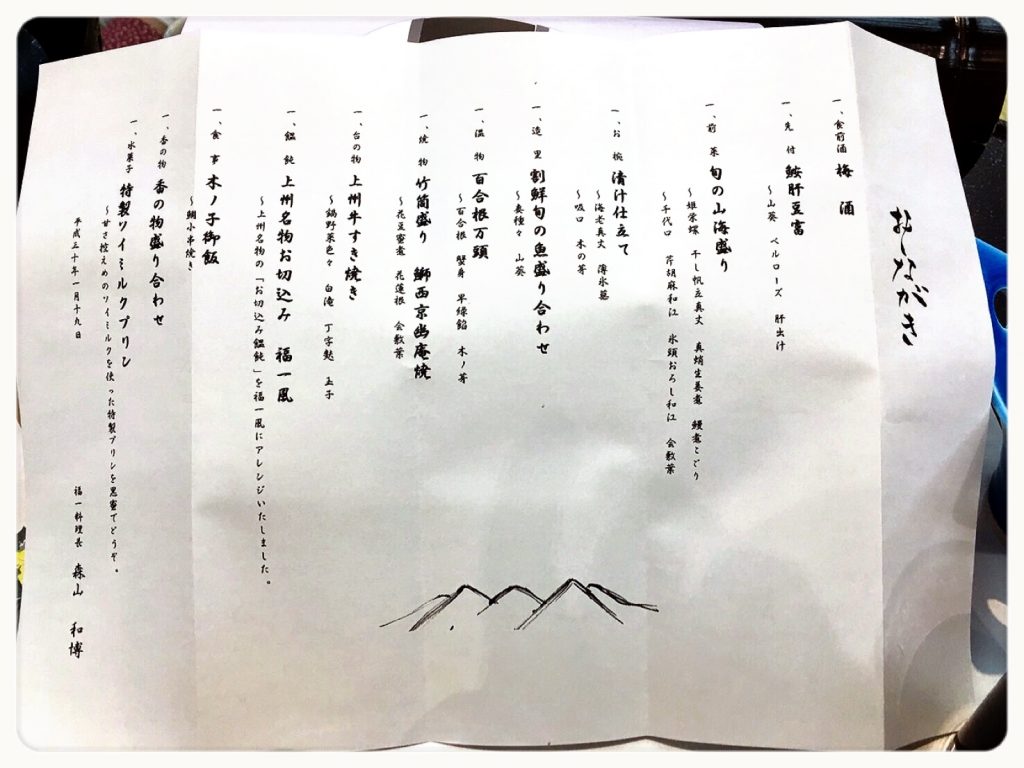 おしながき
一、食前酒 梅 酒
一、先 付 鮟肝豆富
～山葵 ベルローズ 肝出汁
一、前 菜 旬の山海盛り
～姫栄螺 干し帆立真丈 真蛸生姜煮 鰻煮こごり
～千代口 芹胡麻和江 氷頭おろし和江 会敷葉
一、お 椀 清汁仕立て
～海老真丈 薄氷慕
～吸口 木の芽
一、造 里 割鮮旬の魚盛り合わせ
～妻種々 山葵
一、温 物 百合根万頭
～百合根 蟹身 早緑餡 木ノ芽
一、焼 物 竹筒盛り 鰤西京幽庵焼
～花豆蜜煮 花蓮根 会敷葉
一、台の物 上州牛すき焼き
～鍋野菜色々 白滝 丁字麩 玉子
一、饂 飩 上州名物お切込み 福一風
～上州名物の「お切込み饂飩」を福一風にアレンジいたしました。
一、食 事 木ノ子御飯
～鯛小串焼き
一、香の物 香の物盛り合わせ
一、水菓子 特製ソイミルクプリン
～甘さ控えめのソイミルクを使った特製プリンを黒蜜でどうぞ。
平成三十年一月十九日
福一料理長 森山 和博